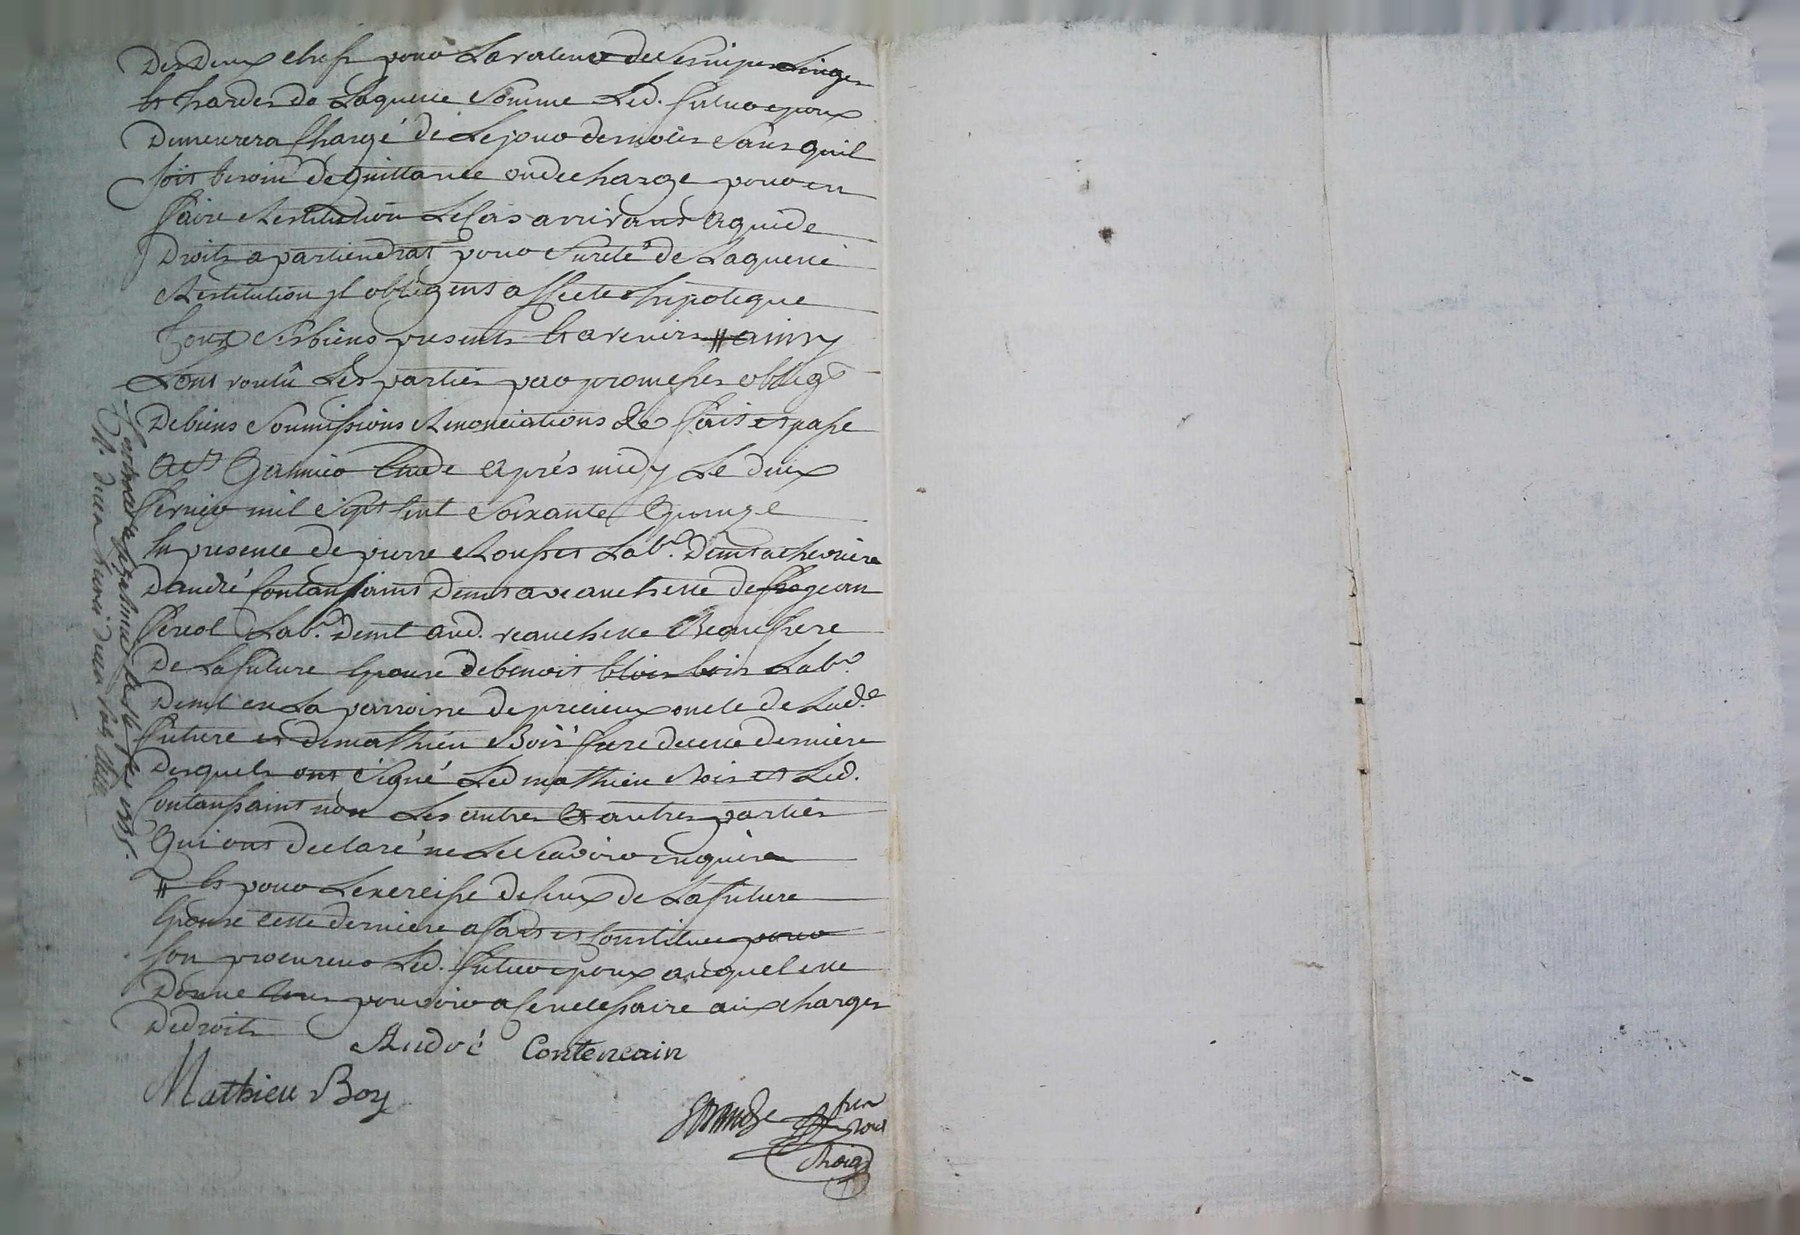 des deux chefs pour la valeur de ses nipes linges
et hardes de laquelle somme led. futur epoux
demeurera chargé dé le jour des noces sans quil
soit besoin de quittance ou decharge pour en
faire restitution le cas arrivant a qui de
droits apartiendrat pour sureté de laquelle
restitution jl obligent affecte hipoteque
tous ses biens presents et avenirs # ainsy
lont voulû les parties par promesses oblig.
de biens soumissions renonciations &a fait et passé
apres midy le deux
fevrier mil sept cent soixante quinze
en presence de pierre lab.r demt a
dandré contansaint demt a veauchette de jean
lab.r demt aud. veauchette beaufrere
de la future epouse de benoit bois lab.r
demt en la parroisse de precieux oncle de lad.e
future et de mathieu Bois frere de cette derniere
desquels ont signé led mathieu Bois et led.
contansaint non les autres et autres parties
qui ont declaré ne le scavoir enquis
# et pour lexercisse de ceux de la future
epouse cette derniere a fait et constitue pour
son procureur led. futur epoux auquel elle
donne tous pouvoir a ce necessaire aux charges
de droits
André Contencain
Mathieu Boy